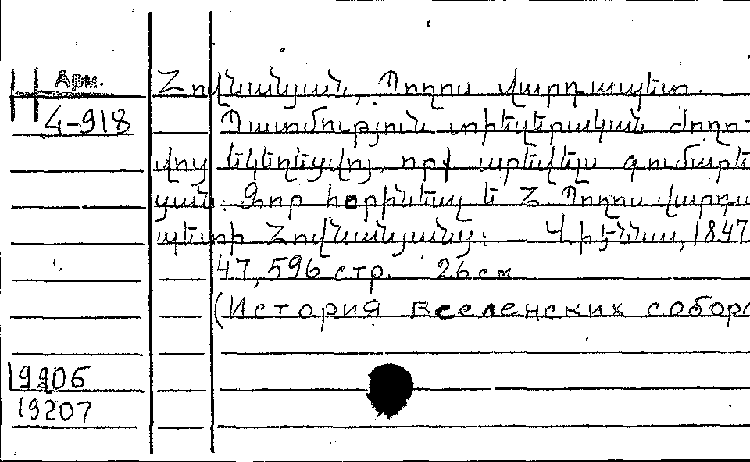 Арм.
Н
4-918
Հովնանյան, Պողոս վարդապետ.
Պատմություն տիեզերական ժողո-
վոց եկեղեցվոյ, որք արևելս գումարե-
ցան. Զոր հօրինեալ է Հ. Պողոս վարդա
պետի Հովնանյանց: — Վիէննա, 1847
47, 596 стр. 26 см
(История вселенских соборо
19906
19207